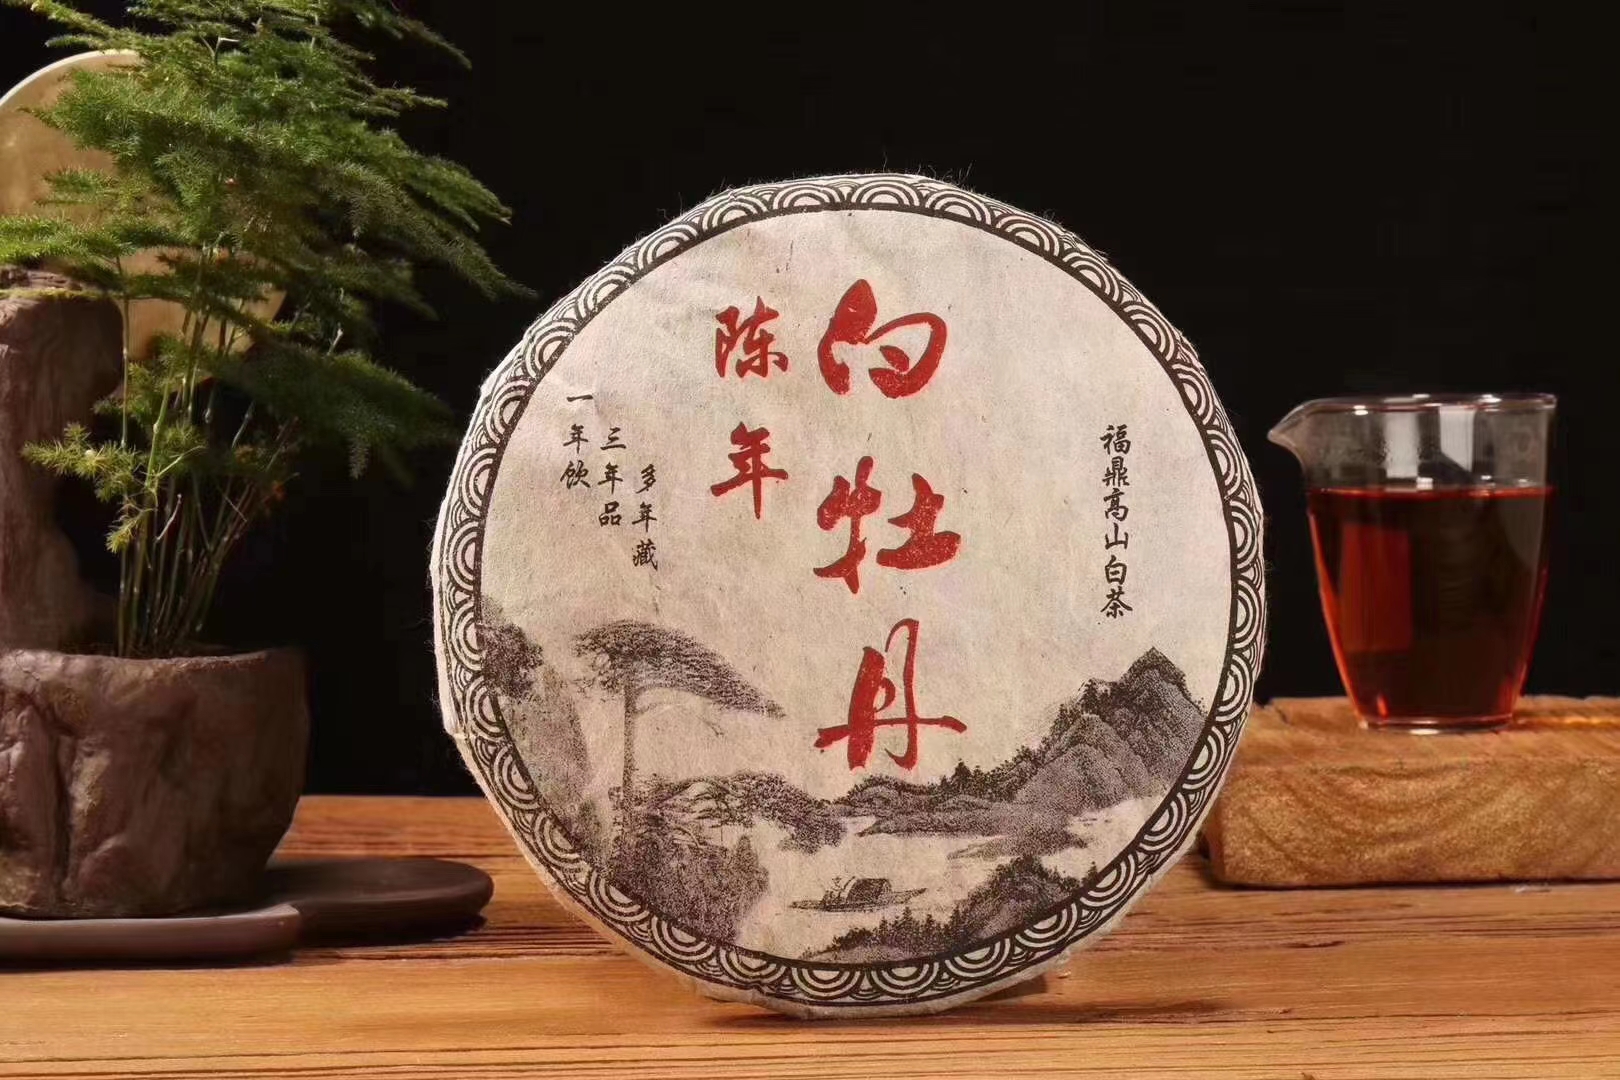 福鼎高山白茶
白牡丹
陈年
多年藏
三年品
一年饮